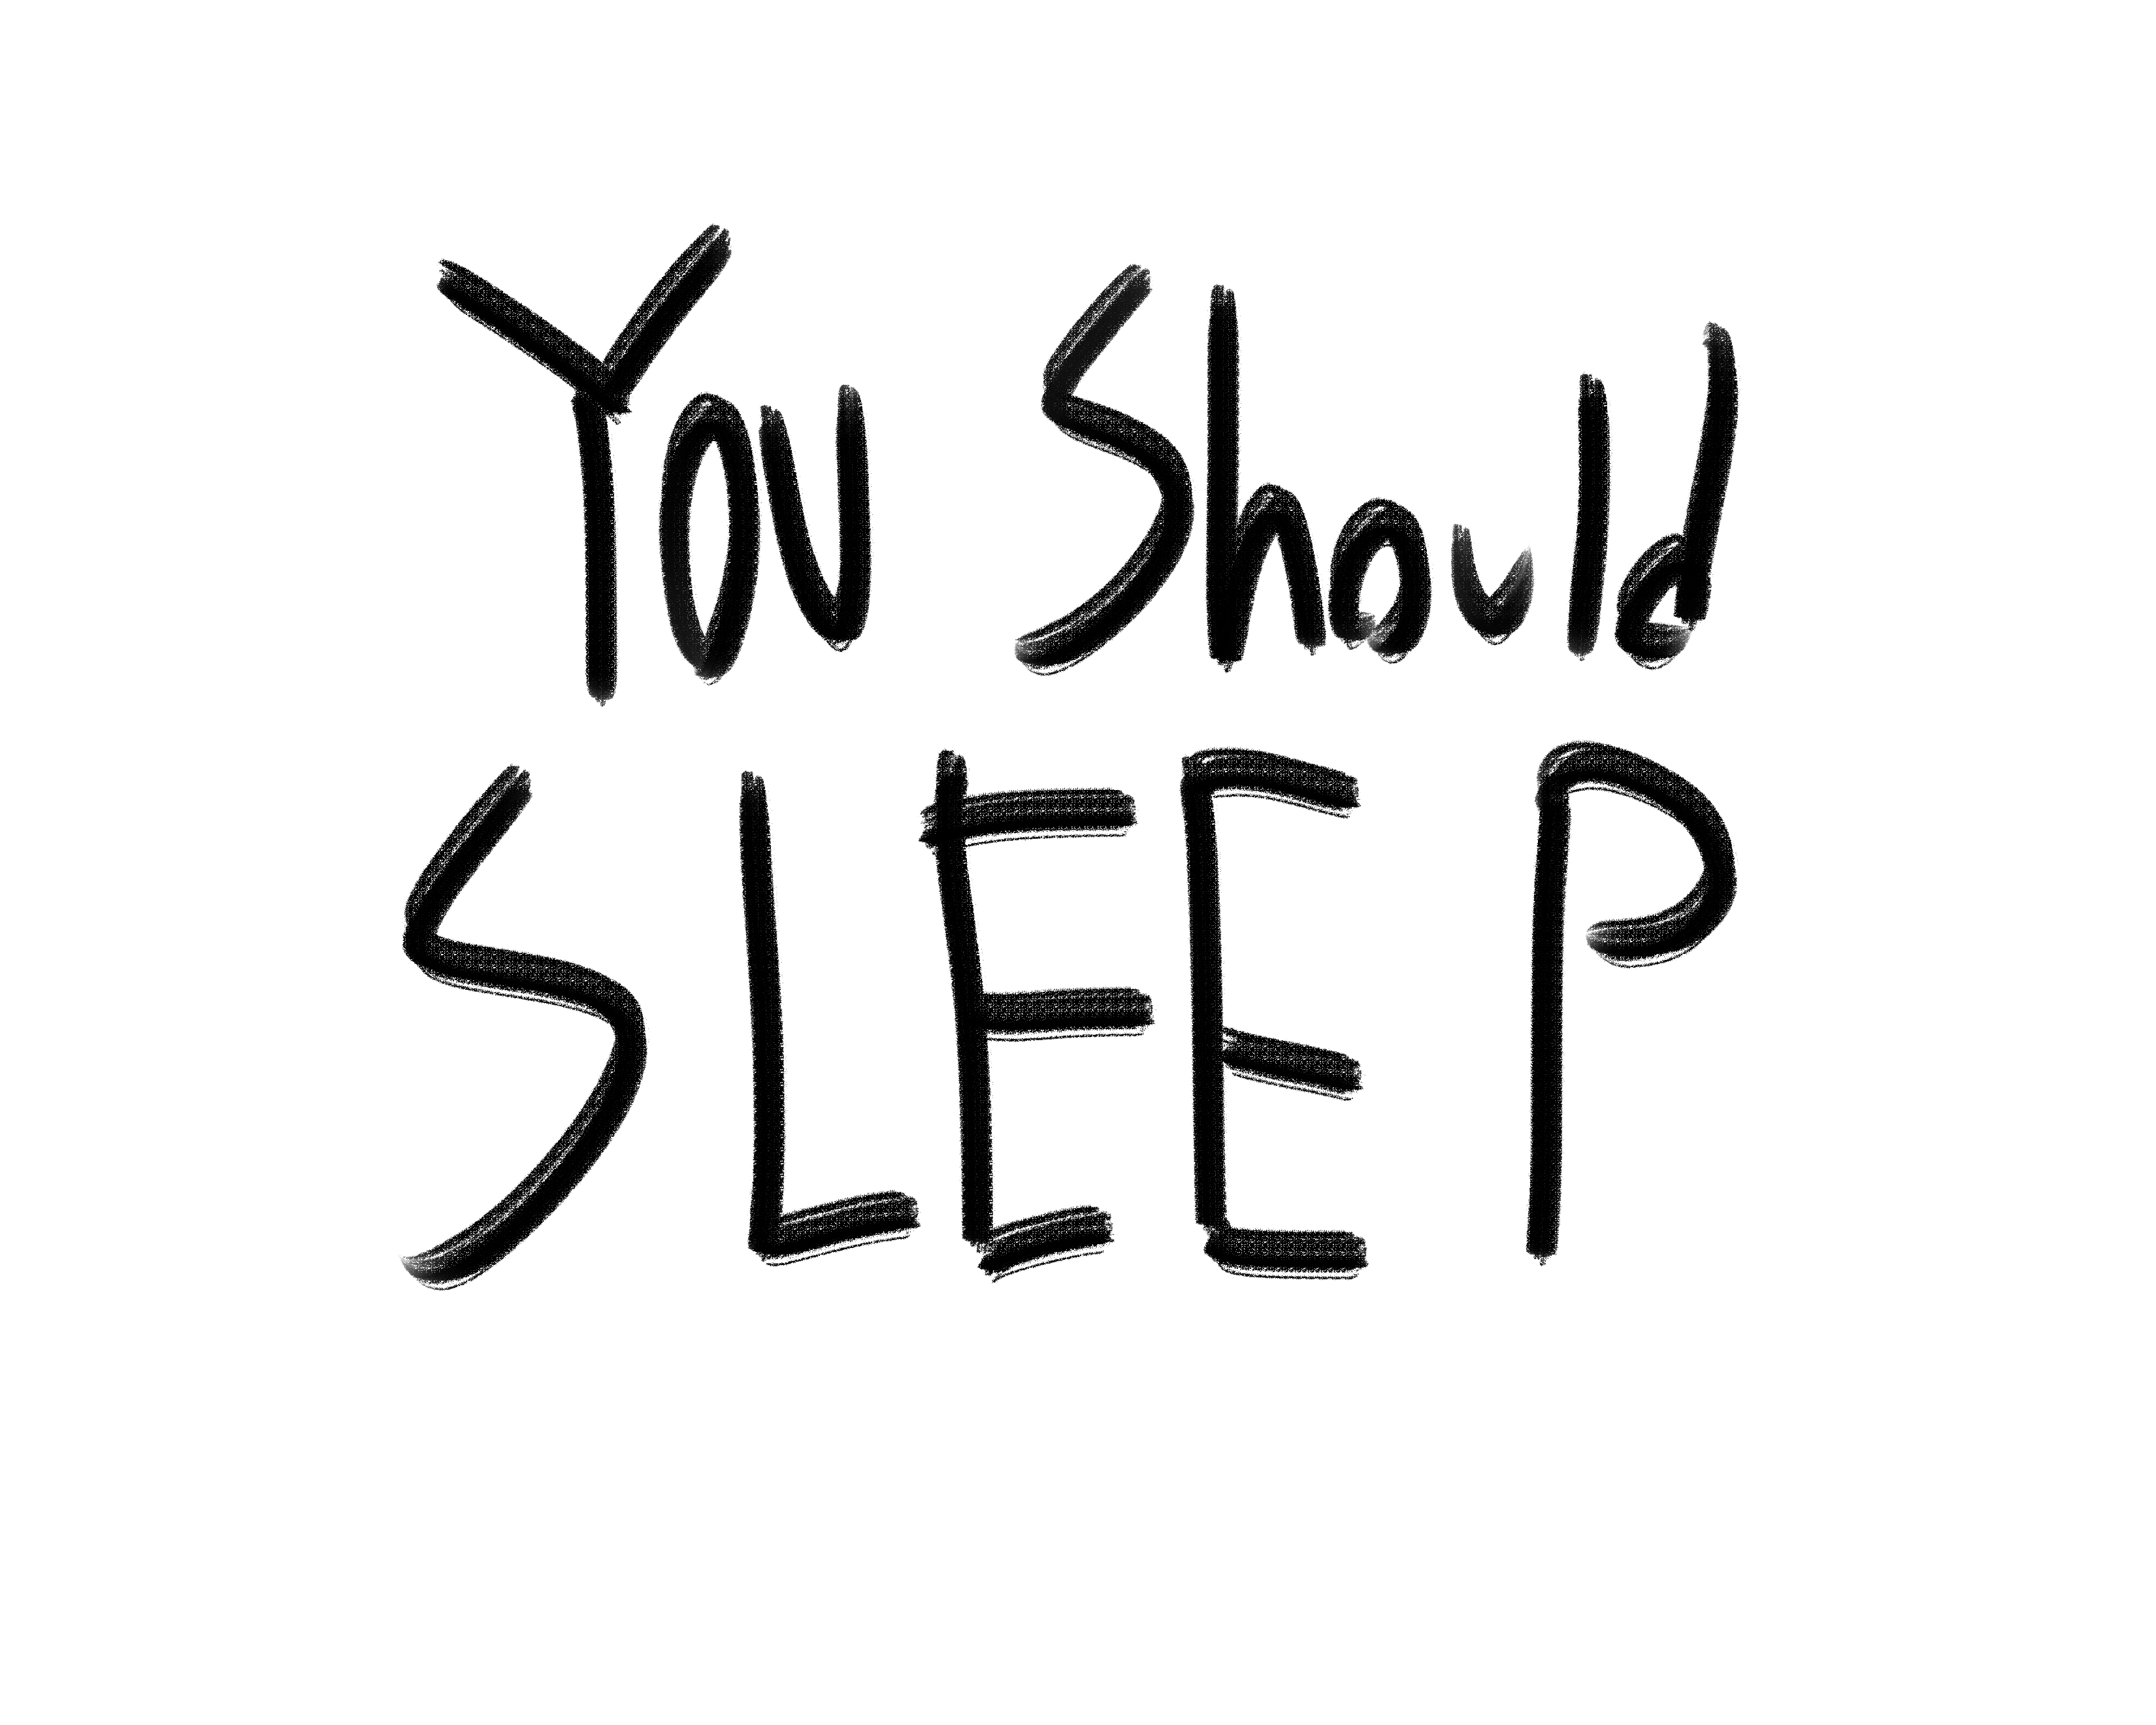 You Should
SLEEP